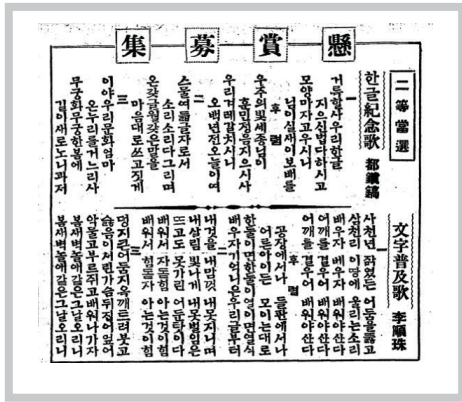 懸賞募集
二等當選
한글紀念歌 都鎭鎬
一
거륵할사우리한글
지으신법다하시고
모양마자고우시니
님이실새이보배를
후렴
우주의빛세종님이
훈민정음지으시사
우리겨레갈치시니
오백년전오늘이여
二
스물여듧글자로서
소리소리다그리며
온갖글월갖은말을
마음대로쓰고짖게
三
이야우리문화엄마
온누리를거느리사
무궁화무궁한봄에
길이새로노니과저
文字普及歌 李順珠
一
사천년 어둠을뚫고
삼천리 이땅에 울리는소리
배우자 배우자 배워야산다
어깨를 결우어 배워야산다
어깨를 결우어 배워야산다
후렴
공장에서나 들판에서나
어른아이든 모이는대로
한둘이면한둘이열이면열식
배우자기억나은우리글부터
二
내것을 내맘껏 내못지니며
내살림 빛나게 내못벌임은
뜨고도 못가린 어둔탓이다
배워서 자돌힘 아는것이힘
배워서 힘돌자 아는것이힘
三
덩지큰어둠지옥깨트려붓고
슳음이서린가슴뒤집어엎어
악물고부르쥐고배워나가자
봄새벽돌애갈은그날오리니
봄새벽돌애갈은그날오리니